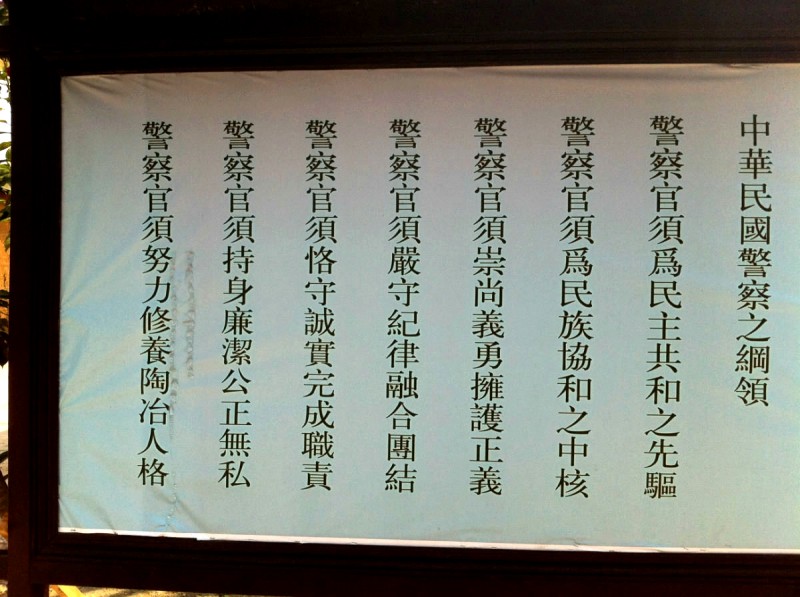 中華民國警察之綱領
警察官須爲民主共和之先驅
警察官須爲民族協和之中核
警察官須崇尚義勇擁護正義
警察官須嚴守紀律融合團結
警察官須恪守誠實完成職責
警察官須持身廉潔公正無私
警察官須努力修養陶冶人格